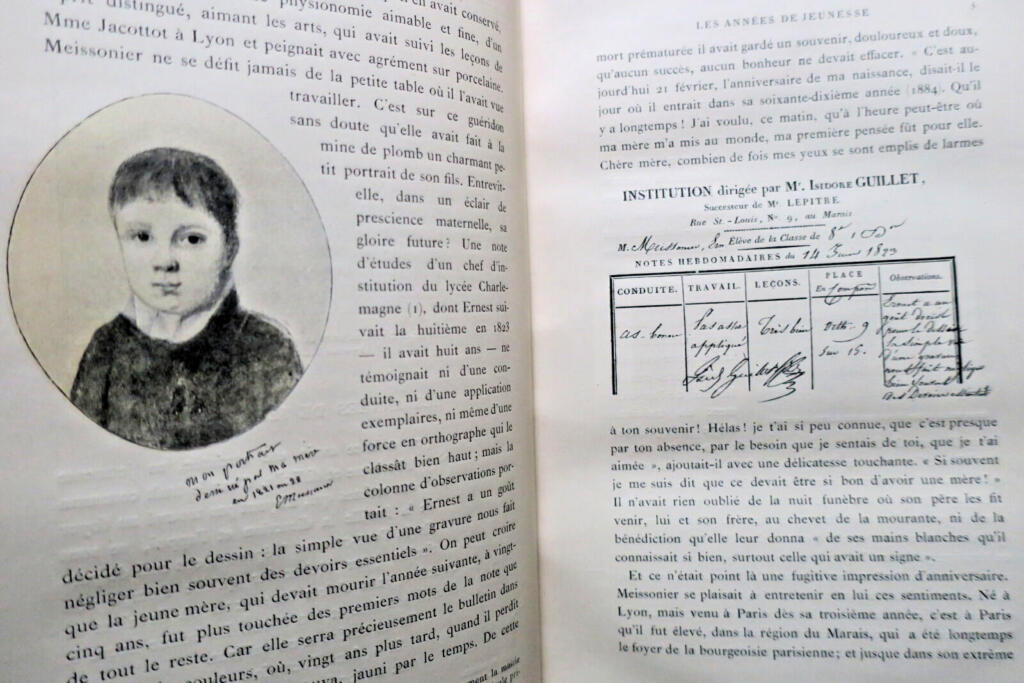 physionomie aimable et fine, d'un
distingué, aimant les arts, qui avait suivi les leçons de
Mme Jacottot à Lyon et peignait avec agrément sur porcelaine.
Meissonier ne se défit jamais de la petite table où il l'avait vue
travailler. C'est sur ce guéridon
sans doute qu'elle avait fait à la
mine de plomb un charmant pe-
tit portrait de son fils. Entrevit-
elle, dans un éclair de
prescience maternelle, sa
gloire future? Une note
d'études d'un chef d'in-
stitution du lycée Charle-
magne (1), dont Ernest sui-
vait la huitième en 1823
— il avait huit ans — ne
témoignait ni d'une con-
duite, ni d'une application
exemplaires, ni même d'une
force en orthographe qui le
classât bien haut; mais la
colonne d'observations por-
tait : « Ernest a un goût
décidé pour le dessin : la simple vue d'une gravure nous fait
négliger bien souvent des devoirs essentiels ». On peut croire
que la jeune mère, qui devait mourir l'année suivante, à vingt-
cinq ans, fut plus touchée des premiers mots de la note que
de tout le reste. Car elle serra précieusement le bulletin dans
couleurs, où, vingt ans plus tard, quand il perdit
jauni par le temps. De cette
mon portrait
dessiné par ma mère
en 1821 ou 22
EMeissonier
LES ANNÉES DE JEUNESSE 5
mort prématurée il avait gardé un souvenir, douloureux et doux,
qu'aucun succès, aucun bonheur ne devait effacer. « C'est au-
jourd'hui 21 février, l'anniversaire de ma naissance, disait-il le
jour où il entrait dans sa soixante-dixième année (1884). Qu'il
y a longtemps ! J'ai voulu, ce matin, qu'à l'heure peut-être où
ma mère m'a mis au monde, ma première pensée fût pour elle.
Chère mère, combien de fois mes yeux se sont emplis de larmes
INSTITUTION dirigée par Mr. ISIDORE GUILLET,
Successeur de Mr LEPITRE
Rue St.-Louis, No. 9, au Marais
M. Meissonier, Élève de la Classe de 8e
NOTES HEBDOMADAIRES du 14 Juin 1823
CONDUITE. TRAVAIL. LEÇONS. PLACE En Observations.
as. bonne Pas assez appliqué Très bien Orth. 9 Sur 15. Ernest a un
goût décidé
pour le dessin
la simple vue
d'une gravure
nous fait négliger
bien souvent
des Devoirs essentiels
à ton souvenir! Hélas! je t'ai si peu connue, que c'est presque
par ton absence, par le besoin que je sentais de toi, que je t'ai
aimée », ajoutait-il avec une délicatesse touchante. « Si souvent
je me suis dit que ce devait être si bon d'avoir une mère! »
Il n'avait rien oublié de la nuit funèbre où son père les fit
venir, lui et son frère, au chevet de la mourante, ni de la
bénédiction qu'elle leur donna « de ses mains blanches qu'il
connaissait si bien, surtout celle qui avait un signe ».
Et ce n'était point là une fugitive impression d'anniversaire.
Meissonier se plaisait à entretenir en lui ces sentiments. Né à
Lyon, mais venu à Paris dès sa troisième année, c'est à Paris
qu'il fut élevé, dans la région du Marais, qui a été longtemps
le foyer de la bourgeoisie parisienne; et jusque dans son extrême